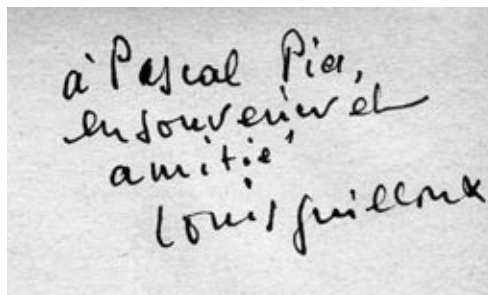 à Pascal Pia,
en souvenir et
amitié
Louis Guilloux